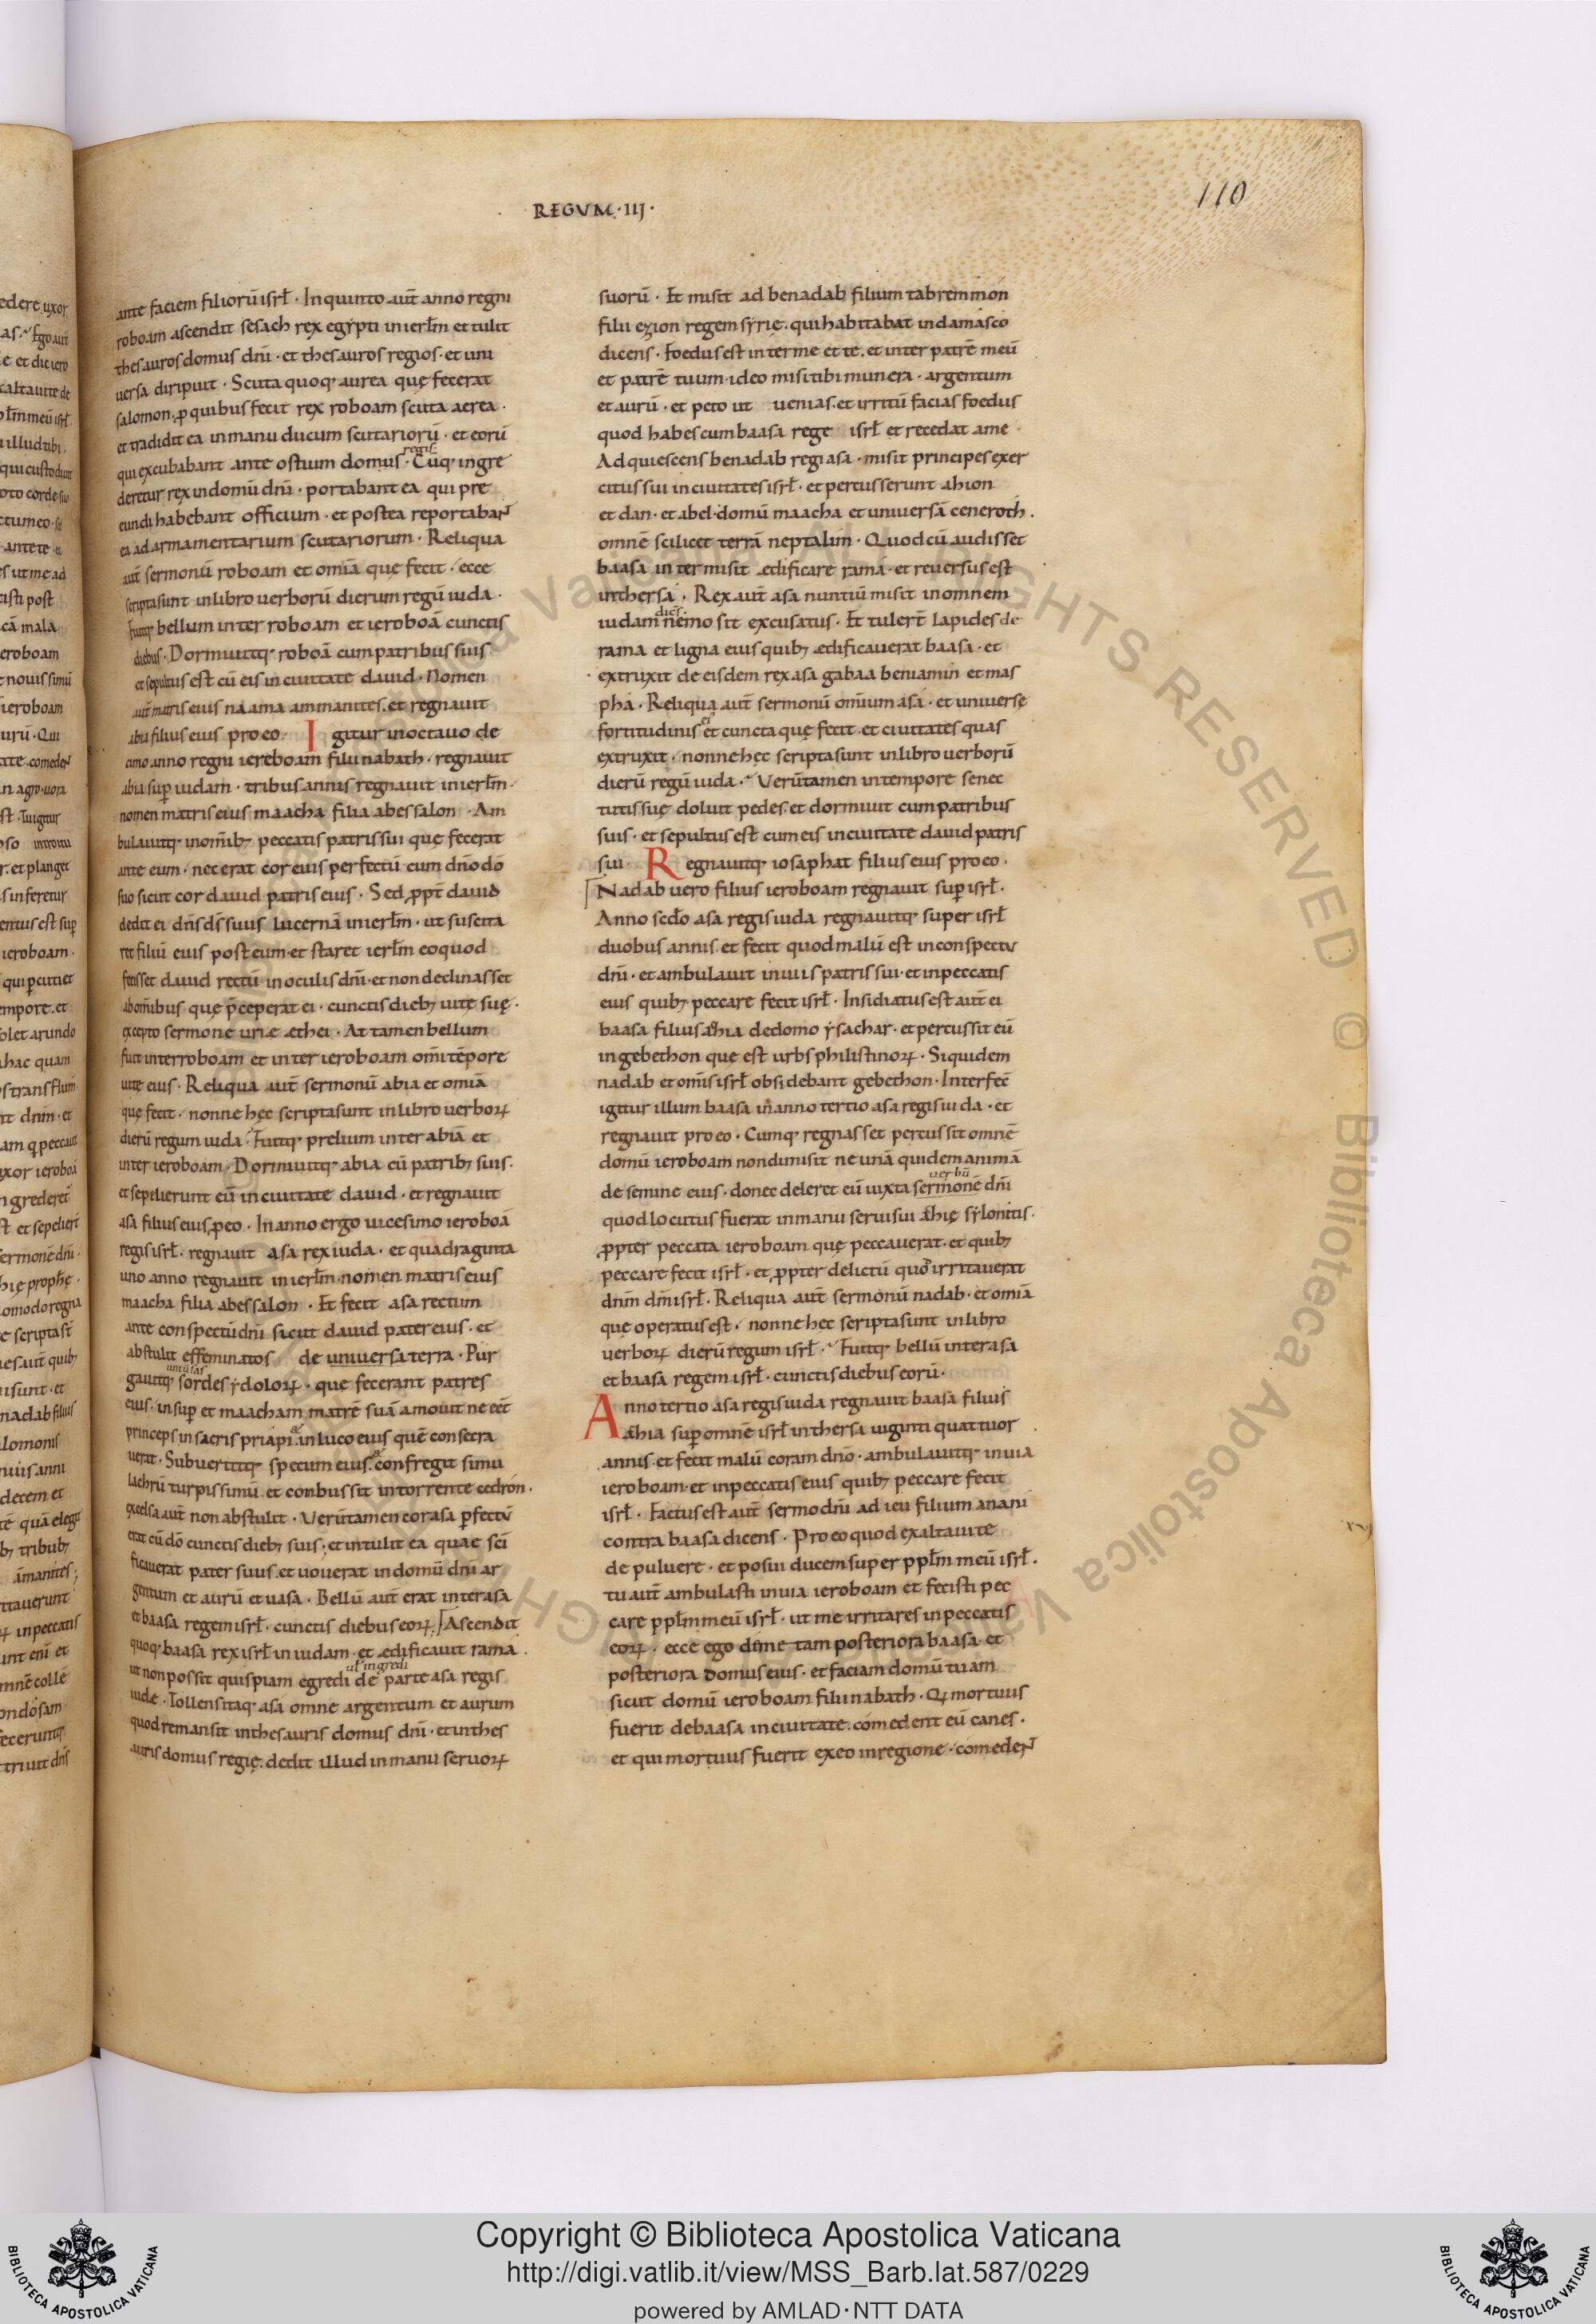 REGVM · IIJ ·
110
ante faciem filiorū isrł · In quinto aut̄ anno regni
roboam ascendit sesach rex egypti in ierłm et tulit
thesauros domus dn̄i · et thesauros regios · et uni
uersa diripuit · Scuta quoq; aurea quę fecerat
salomon · ꝓ quibus fecit rex roboam scuta aerea ·
et tradidit ea in manu ducum scutariorū · et eorū
regis
qui excubabant ante ostium domus · Cūq; ingre
deretur rex in domū dn̄i · portabant ea qui pre
eundi habebant officium · et postea reportabant
ea ad armamentarium scutariorum · Reliqua
aut̄ sermonū roboam et om̄ia quę fecit · ecce
scripta sunt in libro uerborū dierum regū iuda ·
Fuitq; bellum inter roboam et ieroboā cunctis
diebus · Dormiuitq; roboā cum patribus suis
et sepultus est cū eis in ciuitate dauid · Nomen
aut̄ matris eius naama ammanites · et regnauit
abia filius eius pro eo · Igitur in octauo de
cimo anno regni iereboam filii nabath · regnauit
abia suꝑ iudam · tribus annis regnauit in ierłm ·
nomen matris eius maacha filia abessalon · Am
bulauitq; in om̄ib; peccatis patris sui quę fecerat
ante eum · nec erat cor eius perfectū cum dn̄o dō
suo sicut cor dauid patris eius · Sed ꝓpt̄ dauid
dedit ei dn̄s ds̄ suus lucernā in ierłm · ut suscita
ret filiū eius post eum · et staret ierłm eo quod
fecisset dauid rectū in oculis dn̄i · et non declinasset
ab om̄ibus quę p̄ceperat ei · cunctis dieb; uite suę ·
excepto sermone urie ethei · At tamen bellum
fuit inter roboam et inter ieroboam om̄i tēpore
uitę eius · Reliqua aut̄ sermonū abia et om̄ia
quę fecit · nonne hęc scripta sunt in libro uerboꝝ
dierū regum iuda · Fuitq; prelium inter abiā et
inter ieroboam · Dormiuitq; abia cū patrib; suis ·
et sepelierunt eū in ciuitate dauid · et regnauit
asa filius eius ꝓ eo · In anno ergo uicesimo ieroboā
regis isrł · regnauit asa rex iuda · et quadraginta
uno anno regnauit in ierłm · nomen matris eius
maacha filia abessalon · Et fecit asa rectum
ante conspectū dn̄i sicut dauid pater eius · et
abstulit effeminatos de uniuersa terra · Pur
gauitq; sordes ydoloꝝ · que fecerant patres
eius · insuꝑ et maacham matrē suā amouit ne eēt
princeps in sacris priapi in luco eius quē consecra
uerat · Subuertitq; specum eius · confregit simu
lachrū turpissimū · et combussit in torrente cedron ·
excelsa aut̄ non abstulit · Verūtamen cor asa ꝑfectū
erat cū dō cunctis dieb; suis · et intulit ea quae sc̄i
ficauerat pater suus · et uouerat in domū dn̄i ar
gentum et aurū et uasa · Bellū aut̄ erat inter asa
et baasa regem isrł · cunctis diebus eoꝝ · Ascendit
quoq; baasa rex isrł in iudam · et edificauit rama ·
uł ingredi
ut non possit quispiam egredi de parte asa regis
iude · Tollens itaq; asa omne argentum et aurum
quod remansit in thesauris domus dn̄i · et in thes
auris domus regię · dedit illud in manu seruoꝝ
suorū · Et misit ad benadab filium tabremmon
filii ezion regem syrie · qui habitabat in damasco
dicens · Foedus est inter me et te · et inter patrē meū
et patrē tuum · ideo misi tibi munera · argentum
et aurū · et peto ut uenias · et irritū facias foedus
quod habes cum baasa rege isrł et recedat a me ·
Adquiescens benadab regi asa · misit principes exer
citus sui in ciuitates isrł · et percusserunt ahion
et dan · et abel · domū maacha et uniuersā ceneroth ·
omnē scilicet terrā neptalim · Quod cū audisset
baasa intermisit edificare rama · et reuersus est
in thersa · Rex aut̄ asa nuntiū misit in omnem
dices
iudam nemo sit excusatus · Et tulert̄ lapides de
rama et ligna eius quib; edificauerat baasa · et
extruxit de eisdem rex asa gabaa beniamin et mas
pha · Reliqua aut̄ sermonū omium asa · et uniuerse
fortitudinis ei et cuncta quę fecit · et ciuitates quas
extruxit · nonne hęc scripta sunt in libro uerborū
dierū regū iuda · Verūtamen in tempore senec
tutis suę doluit pedes · et dormiuit cum patribus
suis · et sepultus est cum eis in ciuitate dauid patris
sui · Regnauitq; iosaphat filius eius pro eo ·
Nadab uero filius ieroboam regnauit suꝑ isrł ·
Anno scd̄o asa regis iuda regnauitq; super isrł
duobus annis · et fecit quod malū est in conspectu
dn̄i · et ambulauit in uiis patris sui · et in peccatis
eius quib; peccare fecit isrł · Insidiatus est aut̄ ei
baasa filius ahia de domo ysachar · et percussit eū
in gebethon que est urbs philistinoꝝ · Siquidem
nadab et om̄is isrł obsidebant gebethon · Interfec̄
igitur illum baasa in anno tertio asa regis iuda · et
regnauit pro eo · Cumq; regnasset percussit omnē
domū ieroboam non dimisit ne unā quidem animā
uerbū
de semine eius · donec deleret eū iuxta sermonē dn̄i
quod locutus fuerat in manu serui sui ahię sylonitis ·
ꝓpter peccata ieroboam quę peccauerat · et quib;
peccare fecit isrł · et ꝓpter delictū quo irritauerat
dn̄m dm̄ isrł · Reliqua aut̄ sermonū nadab · et om̄ia
que operatus est · nonne hec scripta sunt in libro
uerboꝝ dierū regum isrł · Fuitq; bellū inter asa
et baasa regem isrł · cunctis diebus eorū ·
Anno tertio asa regis iuda regnauit baasa filius
ahia suꝑ omnē isrł in thersa uiginti quattuor
annis · et fecit malū coram dn̄o · ambulauitq; in uia
ieroboam · et in peccatis eius quib; peccare fecit
isrł · Factus est aut̄ sermo dn̄i ad ieu filium anani
contra baasa dicens · Pro eo quod exaltaui te
de puluere · et posui ducem super ppłm meū isrł ·
tu aut̄ ambulasti in uia ieroboam et fecisti pec
care ppłm meū isrł · ut me irritares in peccatis
eoꝝ · ecce ego dime tam posteriora baasa · et
posteriora domus eius · et faciam domū tuam
sicut domū ieroboam filii nabath · Qi mortuus
fuerit de baasa in ciuitate · comedent eū canes ·
et qui mortuus fuerit ex eo in regione · comedent
Copyright © Biblioteca Apostolica Vaticana
http://digi.vatlib.it/view/MSS_Barb.lat.587/0229
powered by AMLAD · NTT DATA
BIBLIOTECA APOSTOLICA VATICANA
BIBLIOTECA APOSTOLICA VATICANA